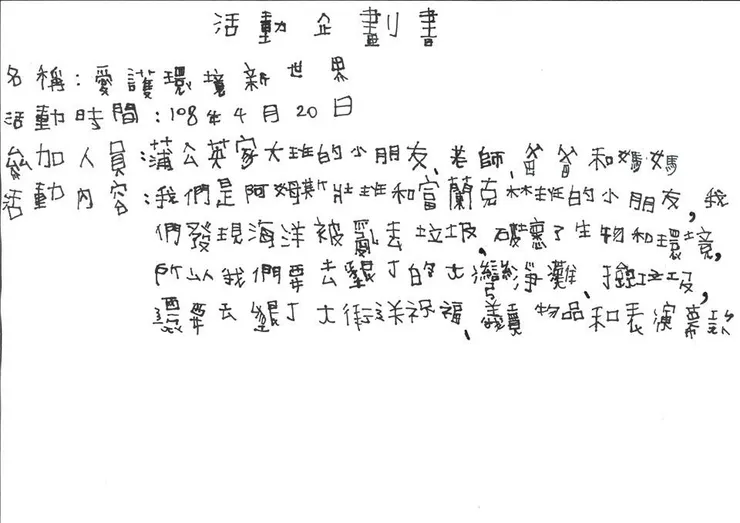 活動企劃書
名稱:愛護環境新世界
活動時間:108年4月20日
參加人員:蒲公英家大班的小朋友、老師、爸爸和媽媽
活動內容:我們是阿姆斯壯班和富蘭克林班的小朋友,我
們發現海洋被亂丟垃圾、破壞了生物和環境,
所以我們要去墾丁的大灣淨灘、撿垃圾,
還要去墾丁大街送祝福、義賣物品和表演募款